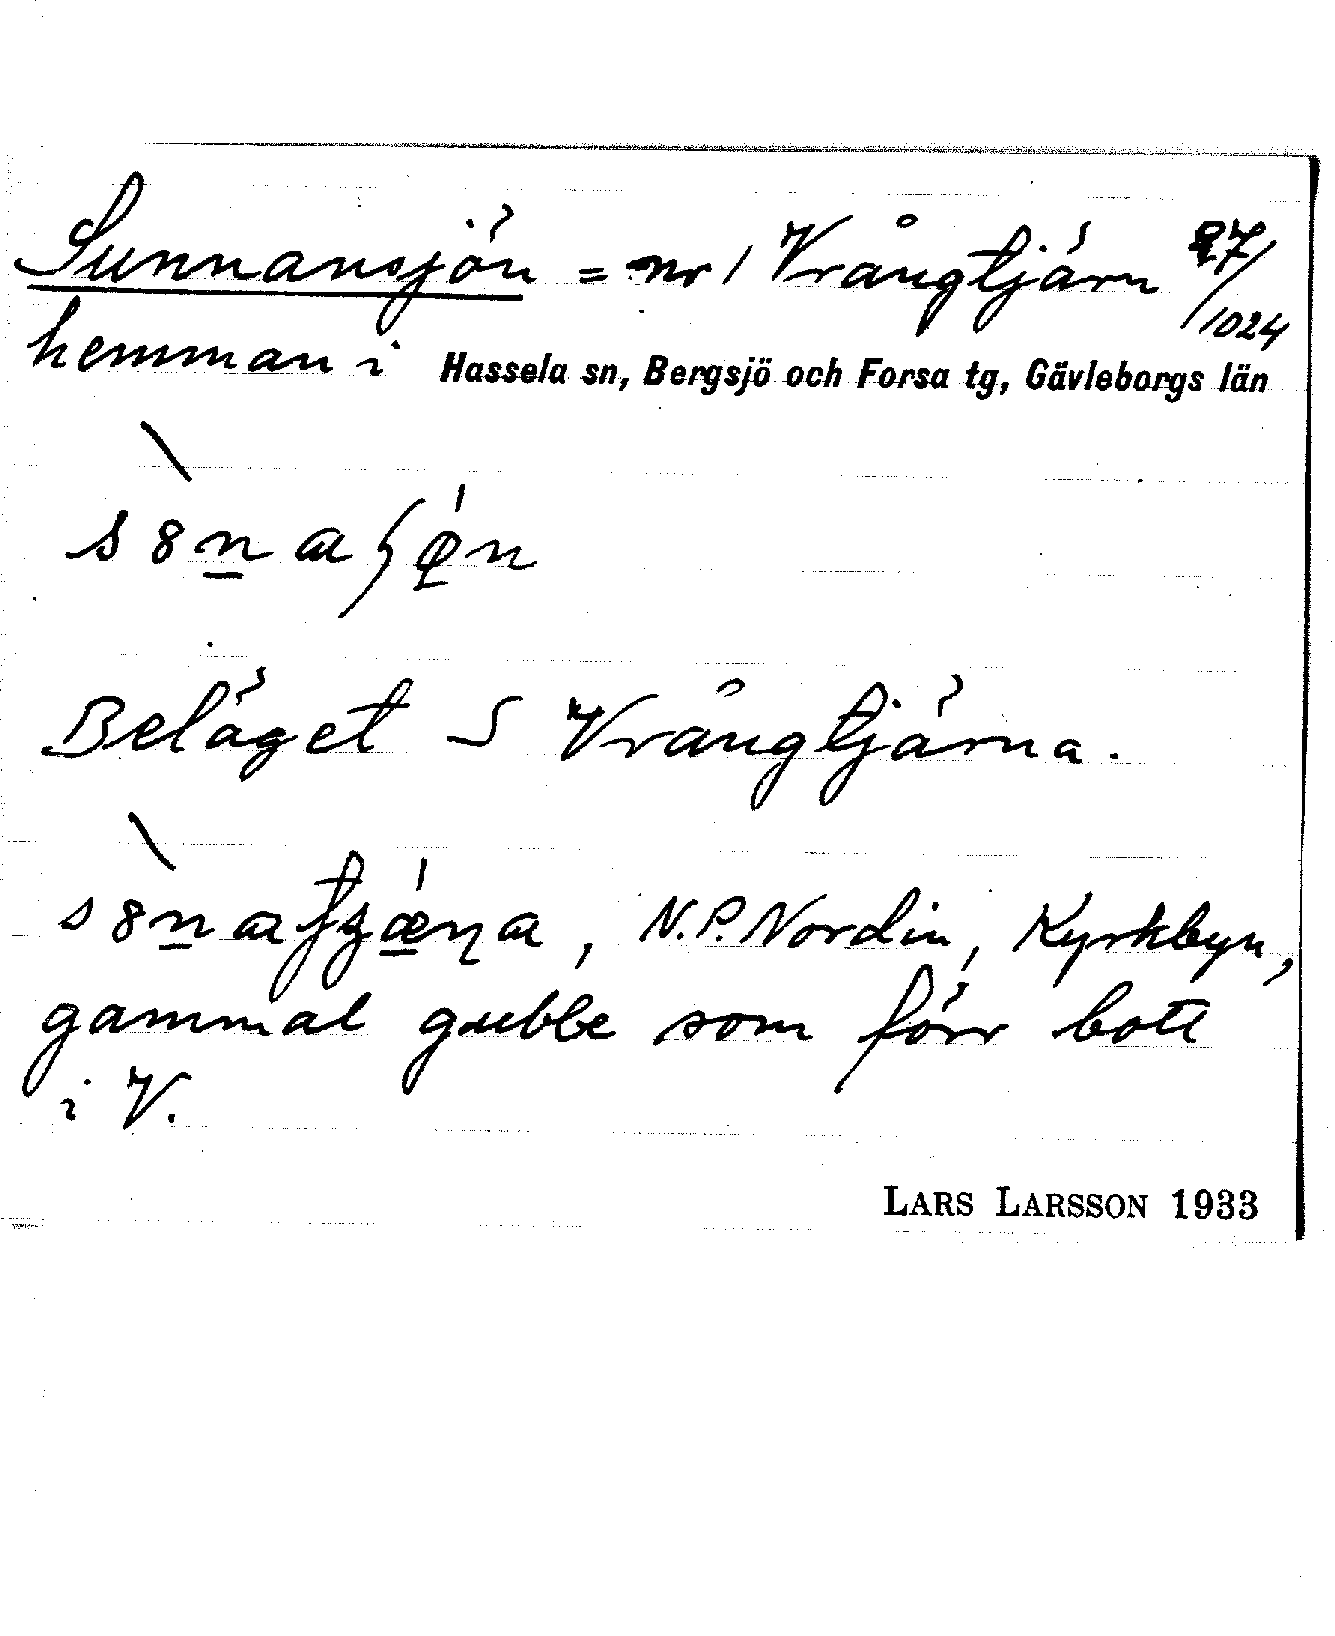 Sunnansjön = nr 1 Vrångtjärn 27/1024
hemman i Hassela sn, Bergsjö och Forsa tg, Gävleborgs län
Beläget S Vrångtjärna.
, N.P. Nordin, Kyrkbyn,
gammal gubbe som förr bott
i V.
LARS LARSSON 1933